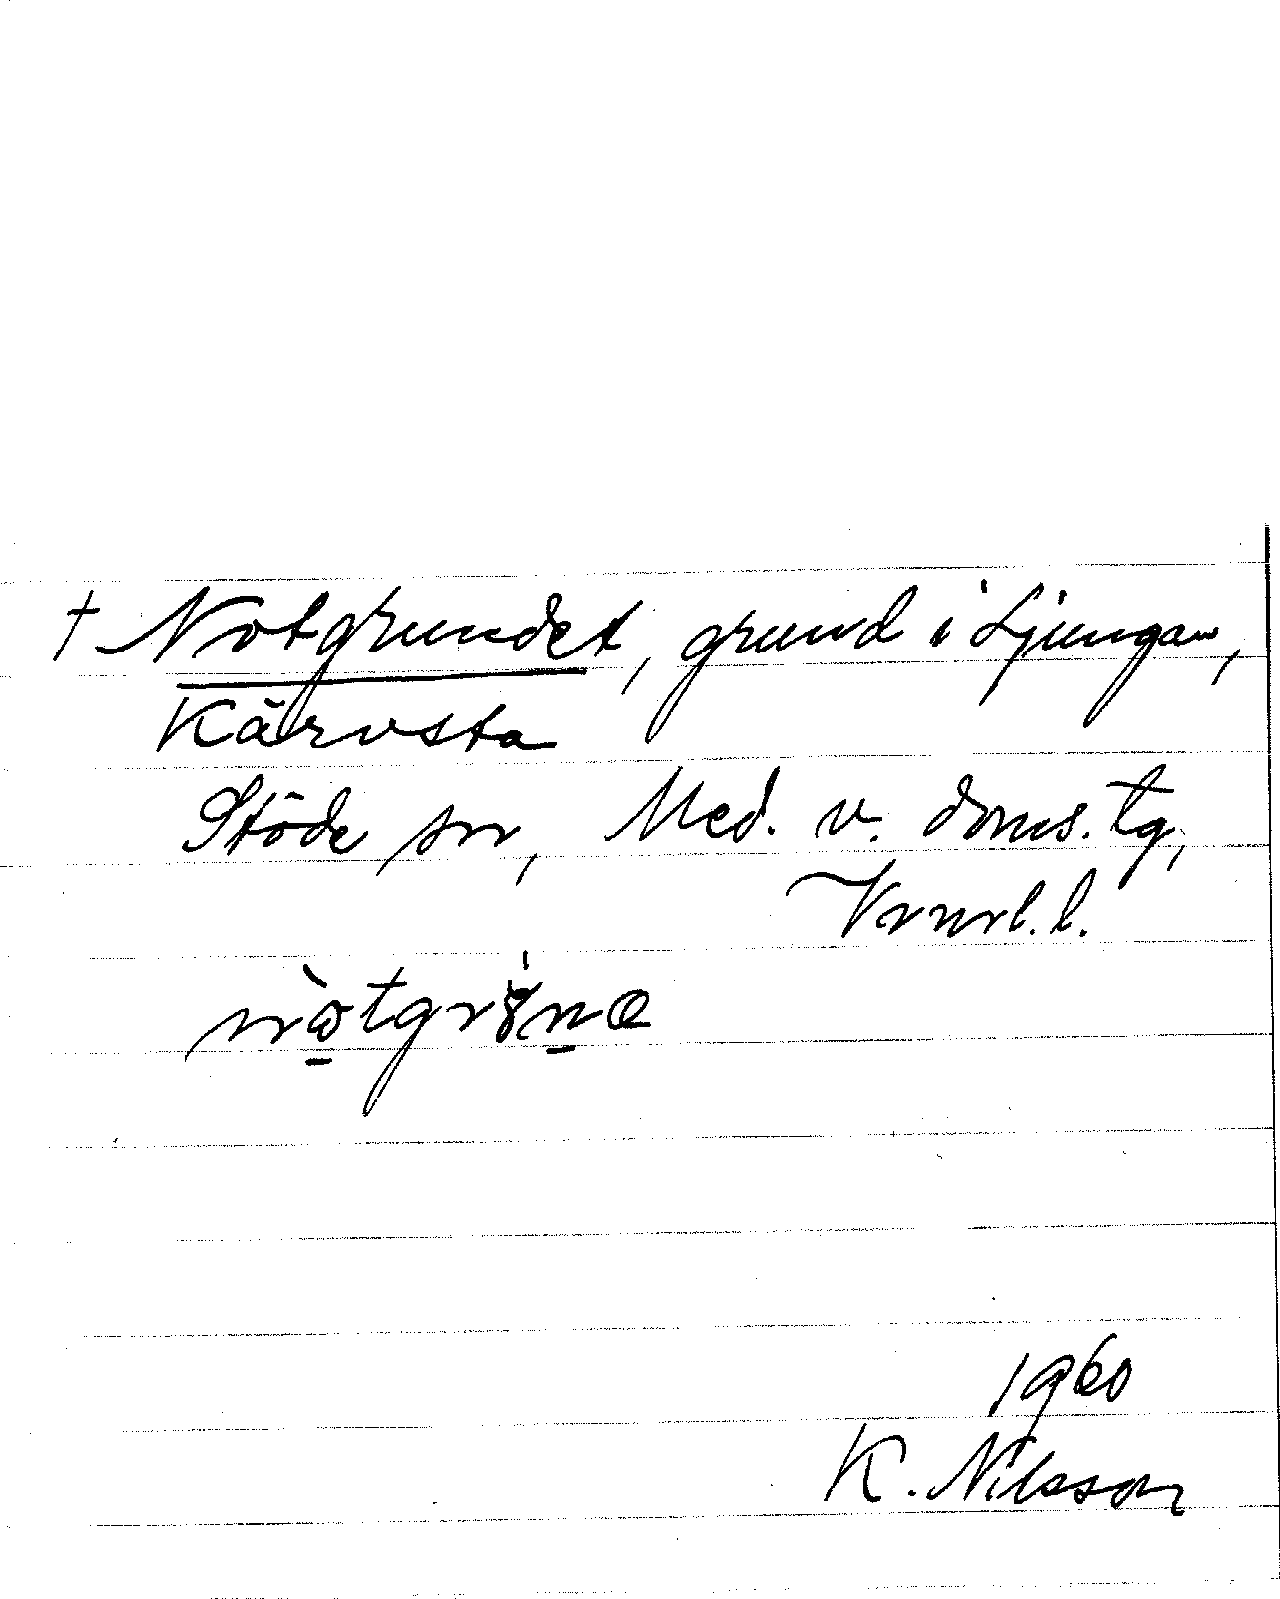 † Notgrundet, grund i Ljungan,
Kärvsta
Stöde sn, Med. v. doms. tg,
Vrnrl. l.
1960
K. Nilsson